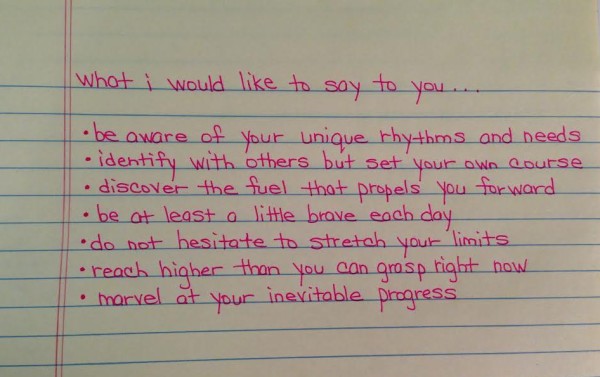 what i would like to say to you...
• be aware of your unique rhythms and needs
• identify with others but set your own course
• discover the fuel that propels you forward
• be at least a little brave each day
• do not hesitate to stretch your limits
• reach higher than you can grasp right now
• marvel at your inevitable progress